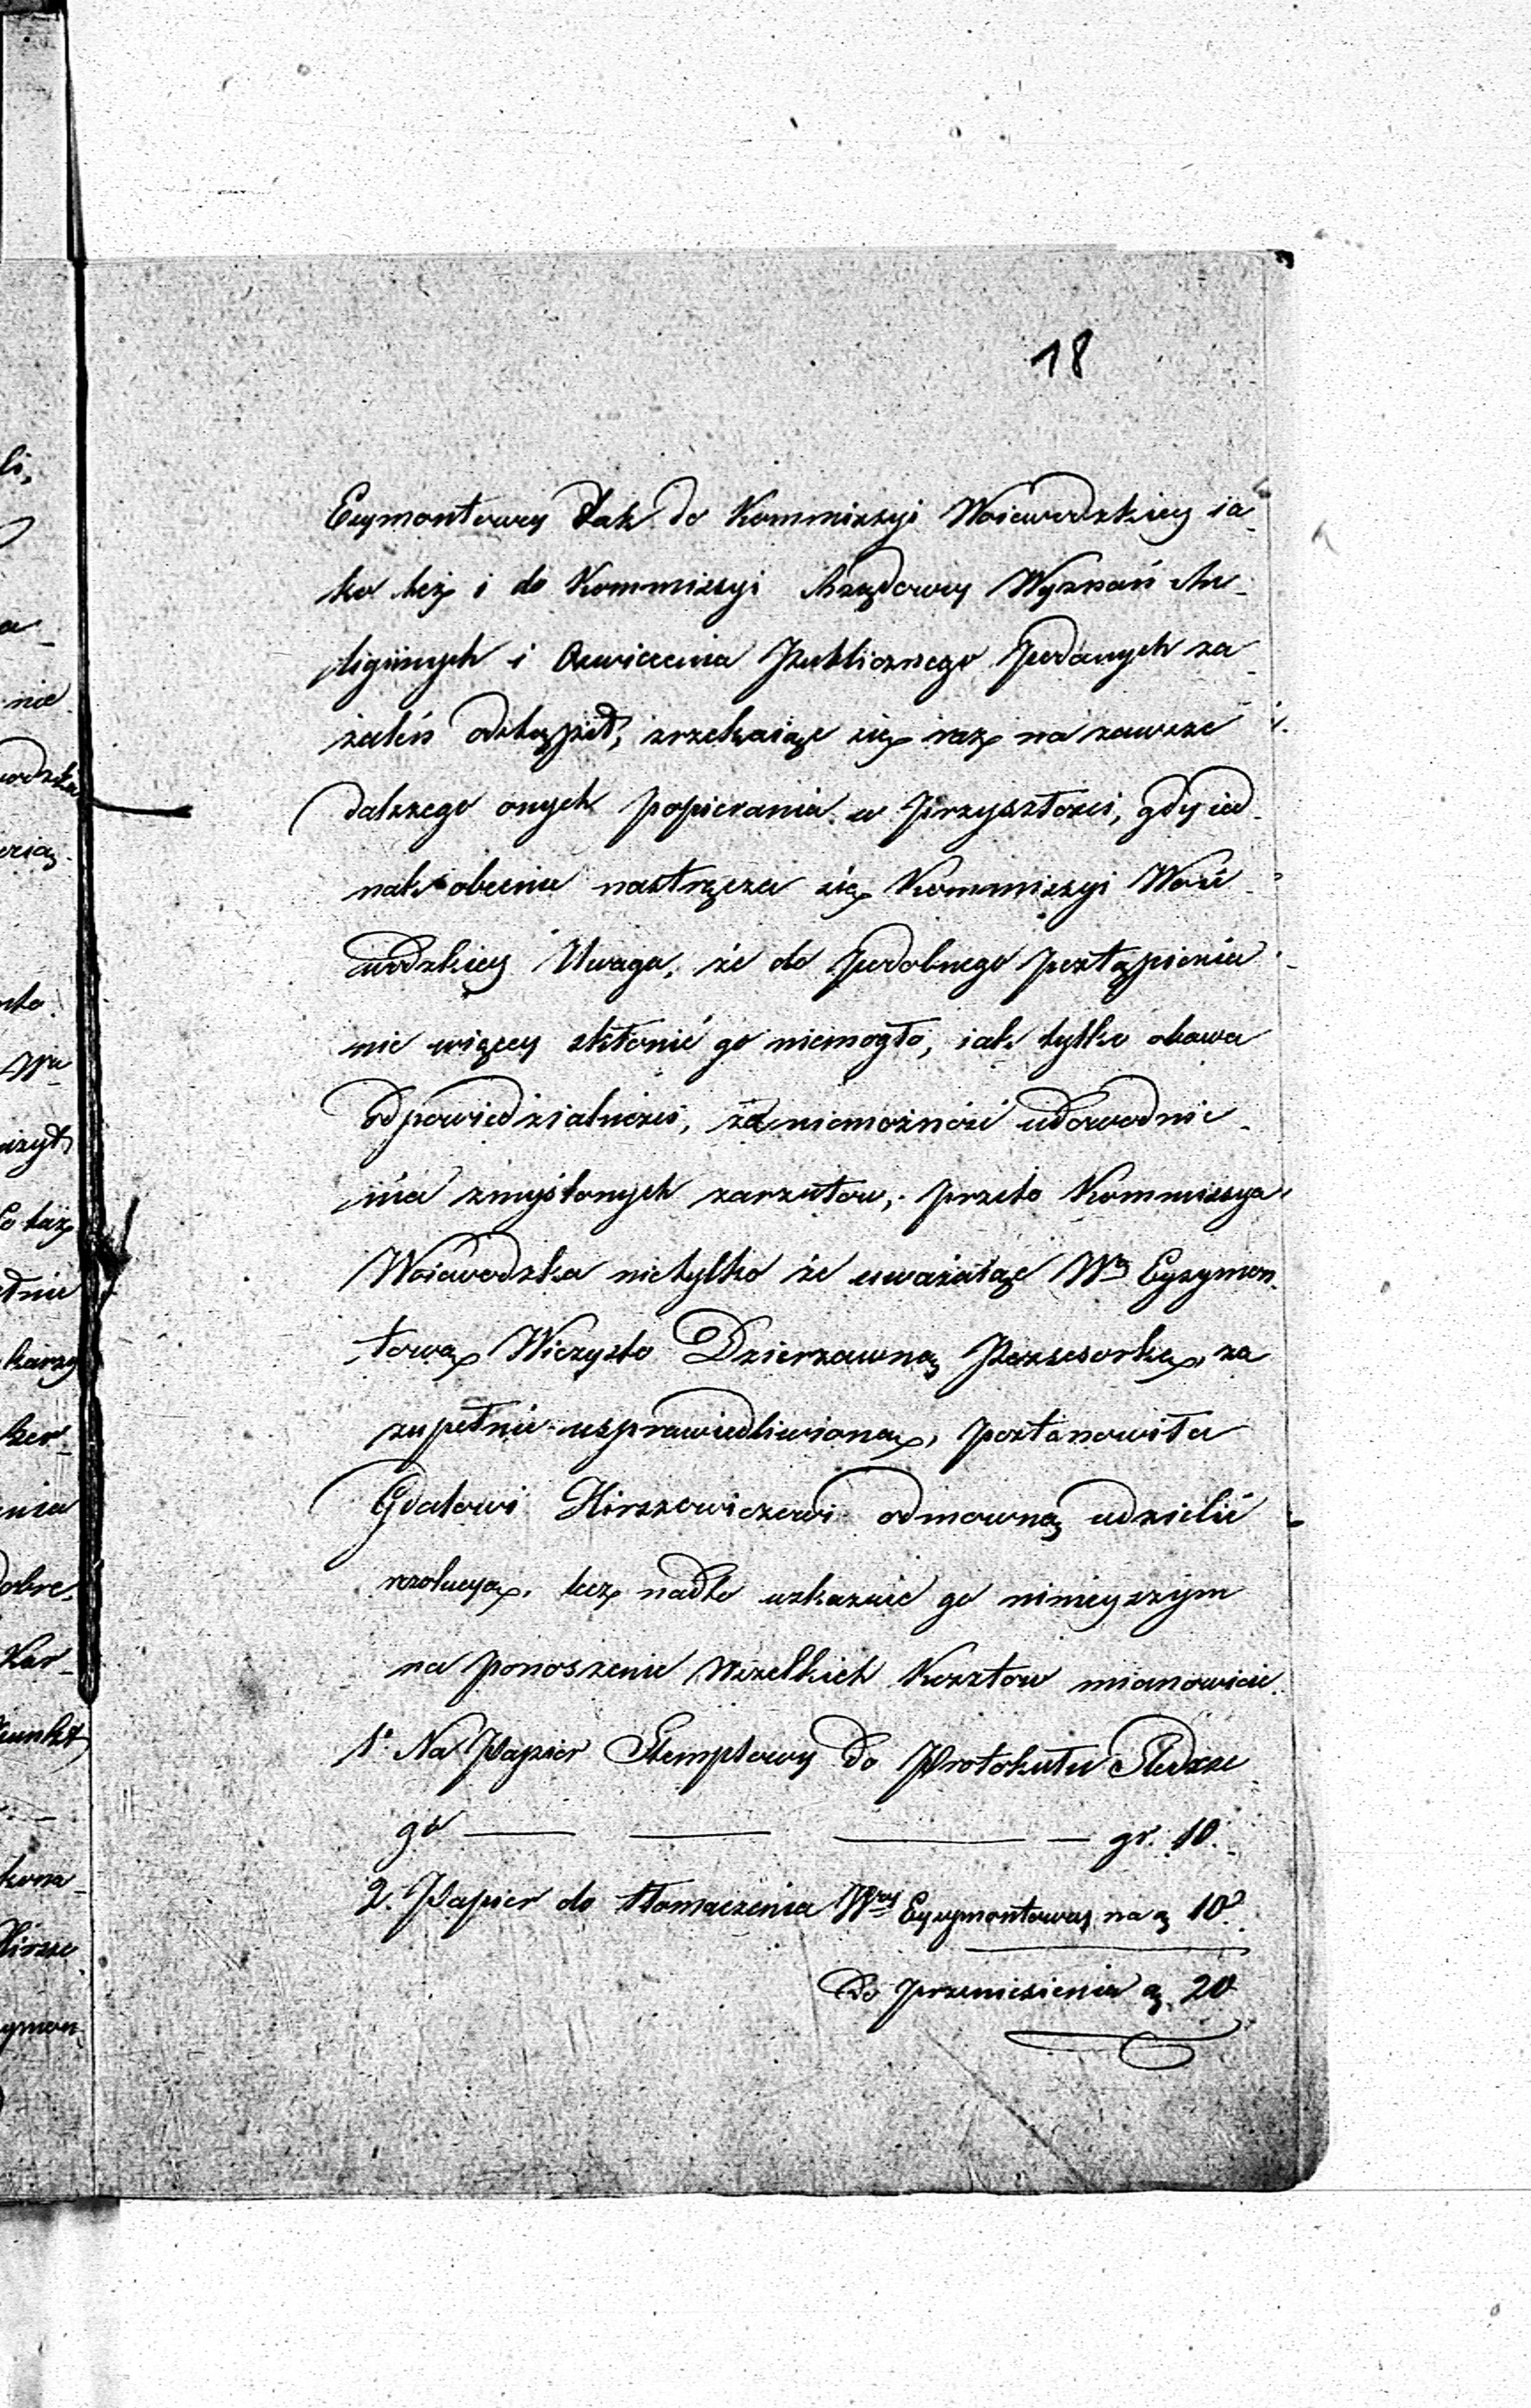 18
Eyymontowey tak do Kommissyi Woiewodzkiey ia-
ko też i do Kommissyi Rządowey Wyznań Re-
ligiinych i Oswiecenia Publicznego podanych za-
żaleń odstąpił, zrzekaiąc się raz na zawsze
dalszego onych popierania w przyszłości, gdy ied-
nak obecnie nastręcza się Kommissyi Woie-
wodzkiey Uwaga, że do podobnego postąpienia
nic więcey skłonić go niemogło, iak tylko obawa
odpowiedzialności, za niemożność udowodnie-
nia zmyślonych zarzutow, przeto Kommissya
Woiewodzka nietylko że uważaiąc Wą Eyzymon-
tową Wieczysto Dzierzawną Possesorkę, za
zupełnie usprawiedliwioną, postanowiła
Gdalowi Hirszowiczowi odmowną udzielić
rezolucyą, lecz nadto wskazuie go ninieyszym
na ponoszenie wszelkich Kosztow mianowicie.
1° Na Papier Stemplowy do Protokułu Śledcze
go — — — — gr. 10.
2. Papier do tłomaczenia Wey Eyzymontowey na 10
Do przeniesienia 20